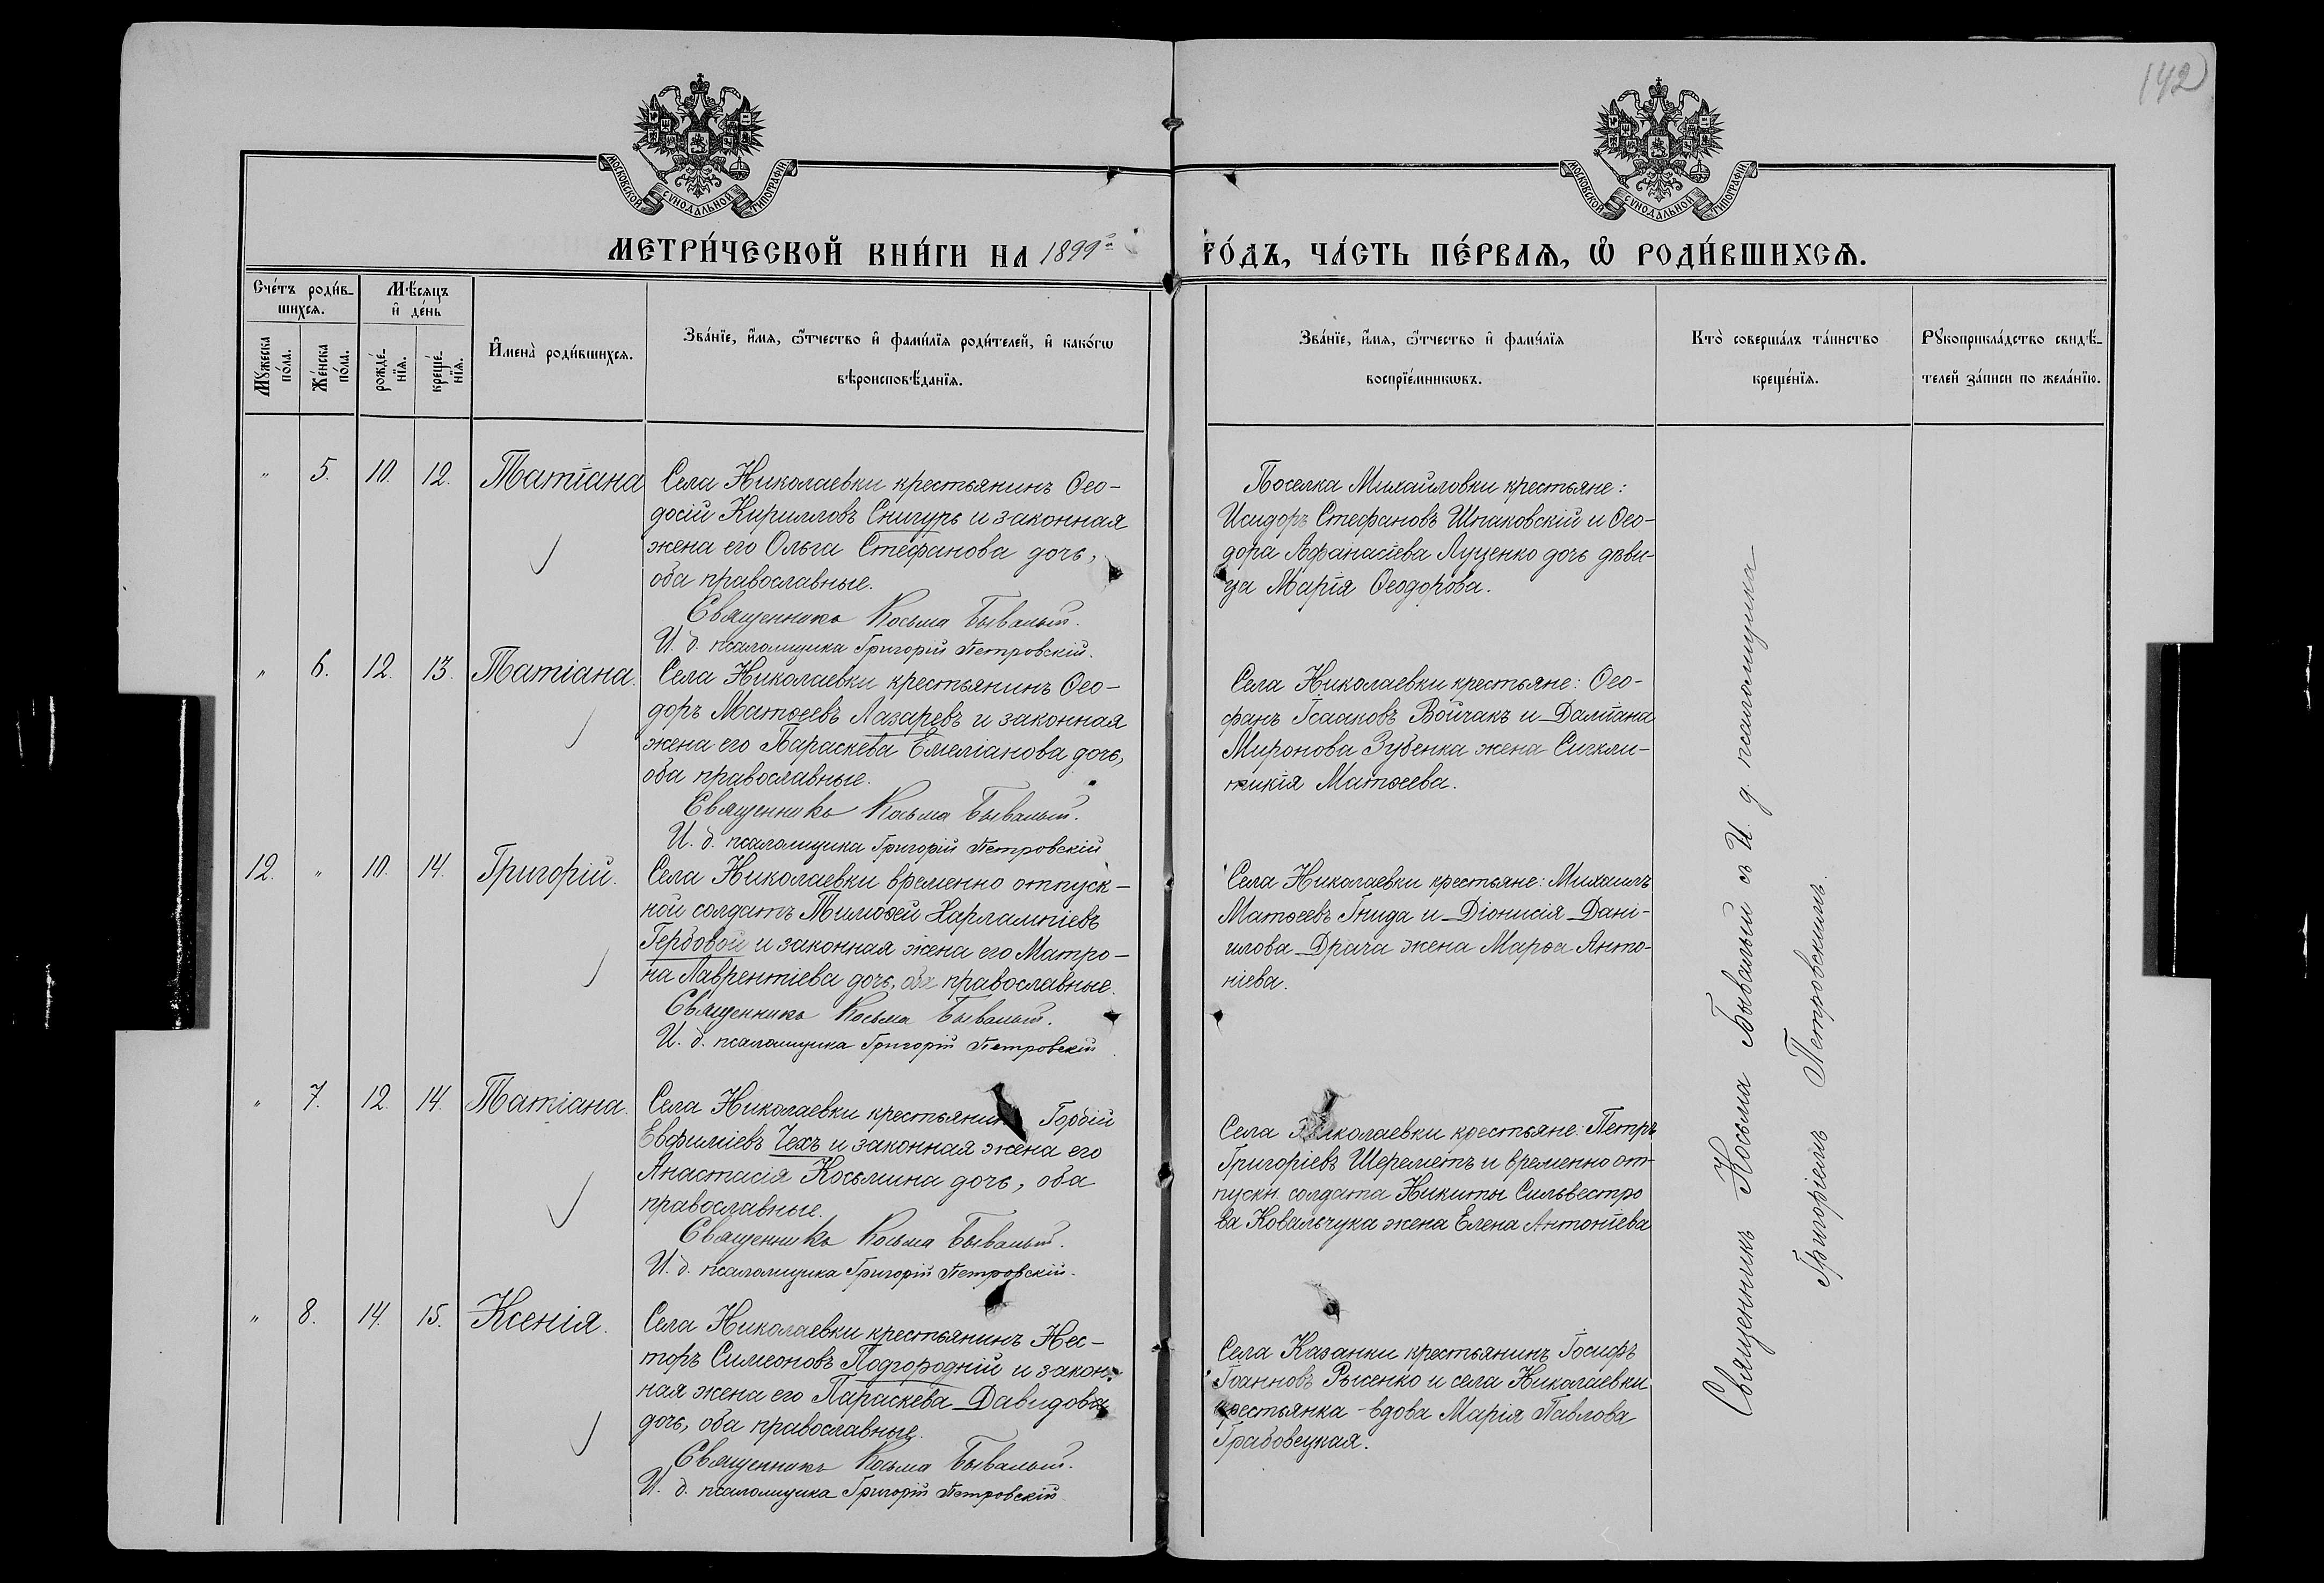 142
МОСКОВСКОЙ СѴНОДАЛЬНОЙ ТИПОГРАФІИ
МОСКОВСКОЙ СѴНОДАЛЬНОЙ ТИПОГРАФІИ
МЕТРИ́ЧЕСКОЙ КНИ́ГИ НА 1899й
ГО́ДЪ, ЧА́СТЬ ПЕ́РВАѦ, Ѡ РОДИ́ВШИХСѦ.
Сче́тъ роди́в-
шихсѧ.
Мꙋжеска по́ла.
Же́нска по́ла.
Мѣ́сяцъ
и҆ де́нь
рожде́-
нїѧ.
креще́-
нїѧ.
И҆мена̀ роди́вшихсѧ.
Зва́нїе, и҆́мѧ, ѻ҆́тчество и҆ фами́лїѧ роди́телей, и҆ како́гѡ
вѣроисповѣ́данїѧ.
Зва́нїе, и҆́мѧ, ѻ҆́тчество и҆ фами́лїѧ
воспрїе́мникѡвъ.
Кто̀ соверша́лъ та́инство
креще́нїѧ.
Рꙋкоприкла́дство свидѣ́-
телей за́писи по жела́нїю.
" 5. 10. 12. Татіана
Села Николаевки крестьянинъ Ѳео-
досій Кирилловъ Снигуръ и законная
жена его Ольга Стефанова дочь,
оба православные.
Священникъ Косьма Бывалый.
И. д. псаломщика Григорій Петровскій.
Поселка Михайловки крестьяне:
Исидоръ Стефановъ Шпаковскій и Ѳео-
дора Аѳанасіева Луценко дочь дѣви-
ца Марія Ѳеодорова.
" 6. 12. 13. Татіана.
Села Николаевки крестьянинъ Ѳео-
доръ Матѳеевъ Лазаревъ и законная
жена его Параскева Емеліанова дочь,
оба православные.
Священникъ Косьма Бывалый.
И. д. псаломщика Григорій Петровскій
Села Николаевки крестьяне: Ѳео-
фанъ Ісааковъ Войчакъ и Даміана
Миронова Зубенка жена Сигкли-
тикія Матѳеева.
12. " 10. 14. Григорій.
Села Николаевки временно отпуск-
ной солдатъ Тимоѳей Харлампіевъ
Гербовой и законная жена его Матро-
на Лаврентіева дочь, оба православные.
Священникъ Косьма Бывалый.
И. д. псаломщика Григорій Петровскій
Села Николаевки крестьяне: Михаилъ
Матѳеевъ Гнида и Діонисія Дані-
илова Драча жена Марѳа Анто-
ніева.
" 7. 12. 14. Татіана.
Села Николаевки крестьянинъ Гордій
Евфиміевъ Чехъ и законная жена его
Анастасія Косьмина дочь, оба
православные.
Священникъ Косьма Бывалый.
И. д. псаломщика Григорій Петровскій.
Села Николаевки крестьяне: Петръ
Григоріевъ Шереметъ и временно от-
пускн. солдата Никиты Сильвестро
ва Ковальчука жена Елена Антоніева
" 8. 14. 15. Ксенія.
Села Николаевки крестьянинъ Нес-
торъ Симеоновъ Подгородній и закон-
ная жена его Параскева Давидова
дочь, оба православные.
Священникъ Косьма Бывалый.
И. д. псаломщика Григорій Петровскій
Села Казанки крестьянинъ Іосифъ
Іоанновъ Рысенко и села Николаевки
крестьянка - вдова Марія Павлова
Грабовецкая.
Священникъ Косьма Бывалый съ И. д. псаломщика
Григоріемъ Петровскимъ.